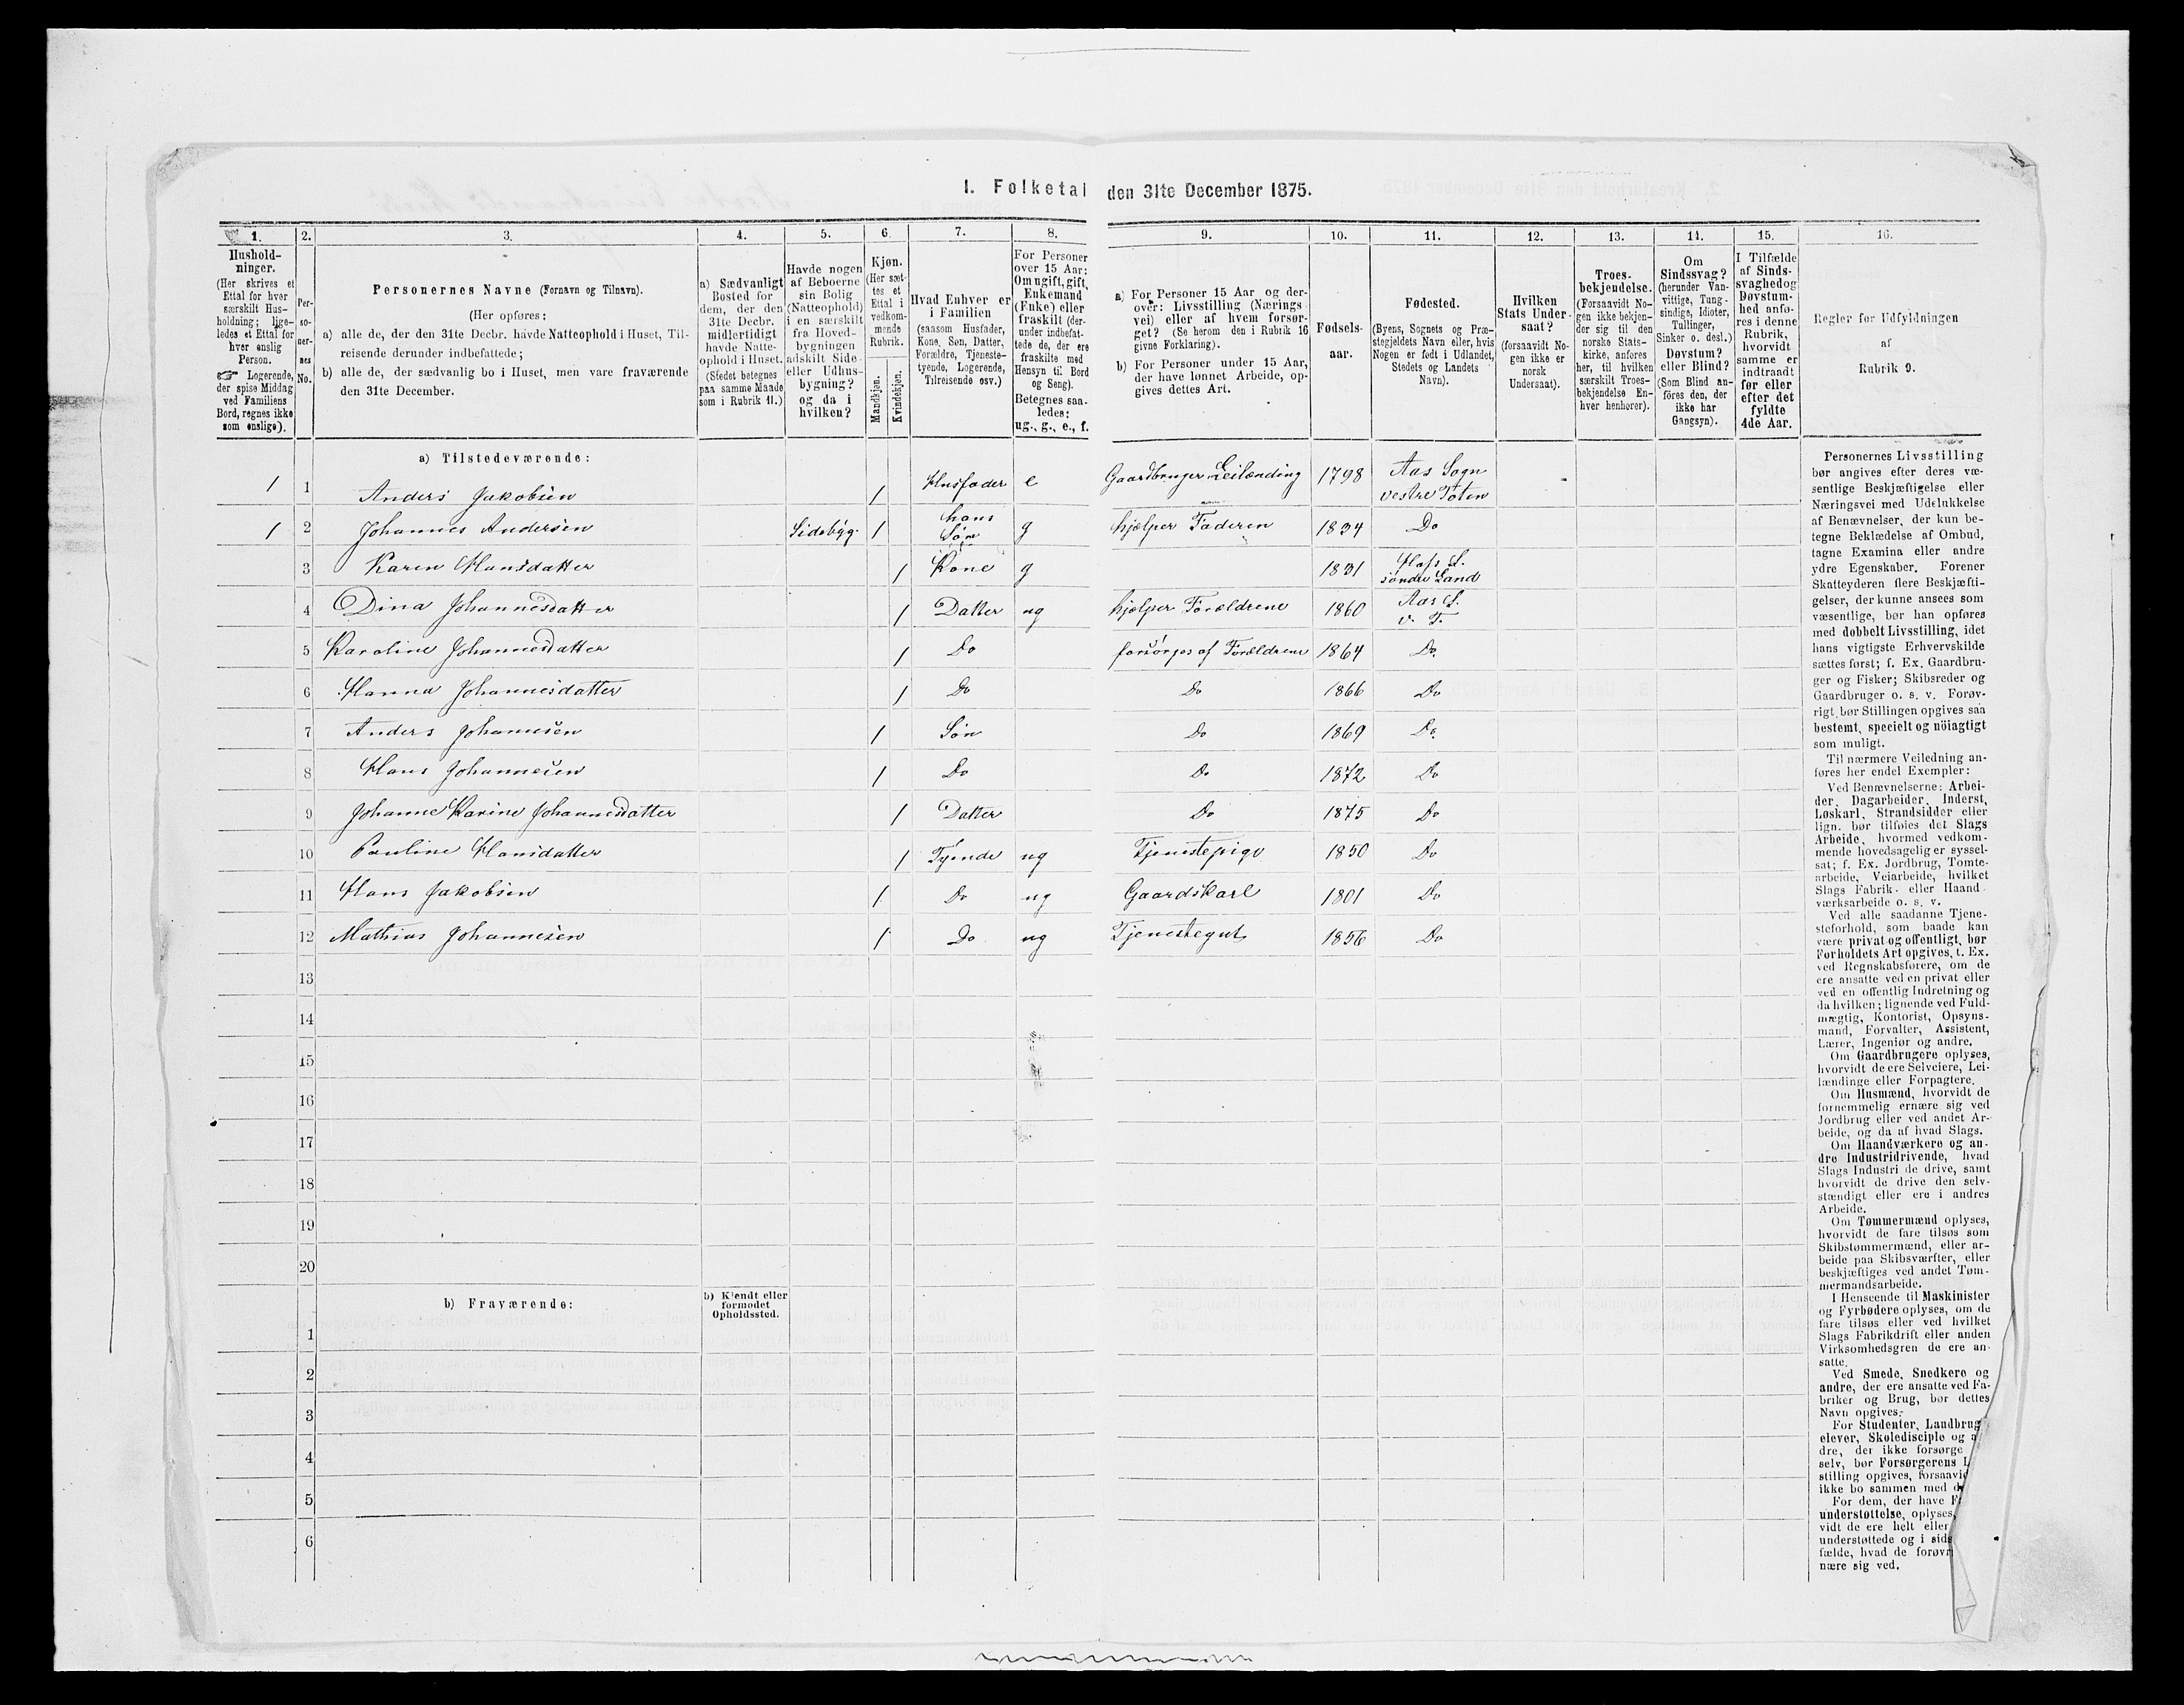 1. Folketal den 31te December 1875.
1. 2. 3. 4. 5. 6. 7. 8. 9. 10. 11. 12. 13. 14. 15. 16.
Hushold-
ninger.
(Her skrives et
Ettal for hver
særskilt Hus-
holdning; lige-
ledes et Ettal for
hver enslig
Person.
☞ Logerende,
der spise Middag
ved Familiens
Bord, regnes ikke
som enslige).
Per-
so-
ner-
nes
No.
Personernes Navne (Fornavn og Tilnavn).
(Her opføres:
a) alle de, der den 31te Decbr. havde Natteophold i Huset, Til-
reisende derunder indbefattede;
b) alle de, der sædvanlig bo i Huset, men vare fraværende
den 31te December.
a) Sædvanligt
Bosted for
dem, der den
31te Decbr.
midlertidigt
havde Natte-
ophold i Huset.
(Stedet betegnes
paa samme Maade
som i Rubrik 11.)
Havde nogen
af Beboerne
sin Bolig
(Natteophold)
i en særskilt
fra Hoved-
bygningen
adskilt Side-
eller Udhus-
bygning?
og da i
hvilken?
Kjøn.
(Her sæt-
tes et
Ettal i
vedkom-
mende
Rubrik.
Mandkjøn.
Kvindekjøn.
Hvad Enhver er
i Familien
(saasom Husfader,
Kone, Søn, Datter,
Forældre, Tjeneste-
tyende, Logerende,
Tilreisende osv.)
For Personer
over 15 Aar:
Om ugift, gift,
Enkemand
(Enke) eller
fraskilt (der-
under indbefat-
tede de, der ere
fraskilte med
Hensyn til Bord
og Seng).
Betegnes saa-
ledes:
ug., g., e., f.
a) For Personer 15 Aar og der-
over: Livsstilling (Nærings-
vei) eller af hvem forsør-
get? (Se herom den i Rubrik 16
givne Forklaring).
b) For Personer under 15 Aar,
der have lønnet Arbeide, op-
gives dettes Art.
Fødsels-
aar.
Fødested.
(Byens, Sognets og Præ-
stegjeldets Navn eller, hvis
Nogen er født i Udlandet,
Stedets og Landets
Navn).
Hvilken
Stats Under-
saat?
(forsaavidt No-
gen ikke er
norsk
Undersaat).
Troes-
bekjendelse.
(Forsaavidt No-
gen ikke bekjen-
der sig til den
norske Stats-
kirke, anføres
her, til hvilken
særskilt Troes-
bekjendelse En-
hver henhører).
Om
Sindssvag?
(herunder Van-
vittige, Tung-
sindige, Idioter,
Tullinger,
Sinker o. desl.)
Døvstum?
eller Blind?
(Som Blind an-
føres den, der
ikke har
Gangsyn).
I Tilfælde
af Sinds-
svaghed og
Døvstum-
hed anfø-
res i denne
Rubrik,
hvorvidt
samme er
indtraadt
før eller
efter det
fyldte
4de Aar.
Regler for Udfyldningen
af
Rubrik 9.
a) Tilstedeværende:
1 1 Anders Jakobsen 1 Husfader e Gaardbruger Leilænding 1798 Aas Sogn
vestre Toten
1 2 Johannes Andersen Sidebyg. 1 hans
Søn g hjelper Faderen 1834 Do
3 Karen Hansdatter 1 Kone g 1831 Hofs S.
søndre Land
4 Dina Johannesdatter 1 Datter ug hjelper Forældrene 1860 Aas S.
v. T.
5 Karoline Johannesdatter 1 Do forsørges af Forældrene 1864 Do.
6 Hanna Johannesdatter 1 Do Do 1866 Do
7 Anders Johannesen 1 Søn Do 1869 Do.
8 Hans Johannesen 1 Do Do 1872 Do
9 Johanne Karine Johannesdatter 1 Datter Do 1875 Do
10 Pauline Hansdatter 1 Tyende ug Tjenestepige 1850 Do
11 Hans Jakobsen 1 Do ug Gaardskarl 1801 Do
12 Mathias Johannesen 1 Do ug Tjenestegut 1856 Do
13
14
15
16
17
18
19
20
b) Fraværende:
b) Kjendt eller
formodet
Opholdssted.
1
2
3
4
5
6
Personernes Livsstilling
bør angives efter deres væ-
sentlige Beskjæftigelse eller
Næringsvei med Udelukkelse
af Benævnelser, der kun be-
tegne Beklædelse af Ombud,
tagne Examina eller andre
ydre Egenskaber. Forener
Skatteyderen flere Beskjæfti-
gelser, der kunne ansees som
væsentlige, bør han opføres
med dobbelt Livsstilling, idet
hans vigtigste Erhvervskilde
sættes først; f. Ex. Gaardbru-
ger og Fisker; Skibsreder og
Gaardbruger o. s. v. Forøv-
rigt bør Stillingen opgives saa
bestemt, specielt og nöiagtigt
som muligt.
Til nærmere Veiledning an-
føres her endel Exempler:
Ved Benævnelserne: Arbei-
der, Dagarbeider, Inderst,
Løskarl, Strandsidder eller
lign. bør tilføies det Slags
Arbeide, hvormed vedkom-
mende hovedsagelig er syssel-
sat; f. Ex. Jordbrug, Tomte-
arbeide, Veiarbeide, hvilket
Slags Fabrik- eller Haand-
værksarbeide o. s. v.
Ved alle saadanne Tjene-
steforhold, som baade kan
være privat og offentligt, bør
Forholdets Art opgives, t. Ex.
ved Regnskabsførere, om de
ere ansatte ved en privat eller
ved en offentlig Indretning og
da hvilken; lignende ved Fuld-
mægtig, Kontorist, Opsyns-
mand, Forvalter, Assistent,
Lærer, Ingeniør og andre.
Om Gaardbrugere oplyses,
hvorvidt de ere Selveiere, Lei-
lændinge eller Forpagtere.
Om Husmænd, hvorvidt de
fornemmelig ernære sig ved
Jordbrug eller ved andet Ar-
beide, og da af hvad Slags.
Om Haandværkere og an-
dre Industridrivende, hvad
Slags Industri de drive, samt
hvorvidt de drive den selv-
stændigt eller ere i andres
Arbeide.
Om Tømmermænd oplyses,
hvorvidt de fare tilsøs som
Skibstømmermænd, eller ar-
beide paa Skibsværfter, eller
beskjæftiges ved andet Tøm-
mermandsarbeide.
I Henseende til Maskinister
og Fyrbødere oplyses, om de
fare tilsøs eller ved hvilket
Slags Fabrikdrift eller anden
Virksomhedsgren de ere an-
satte.
Ved Smede, Snedkere og
andre, der ere ansatte ved Fa-
briker og Brug, bør dettes
Navn opgives.
For Studenter, Landbrugs-
elever, Skoledisciple og
dre, der ikke forsørge
selv, bør Forsørgerens
stilling opgives, forsaavi
ikke bo sammen med
For dem, der have
understøttelse, oplyses,
vidt de ere helt eller
understøttede og i sid
fælde, hvad de forøv
nære sig ved.